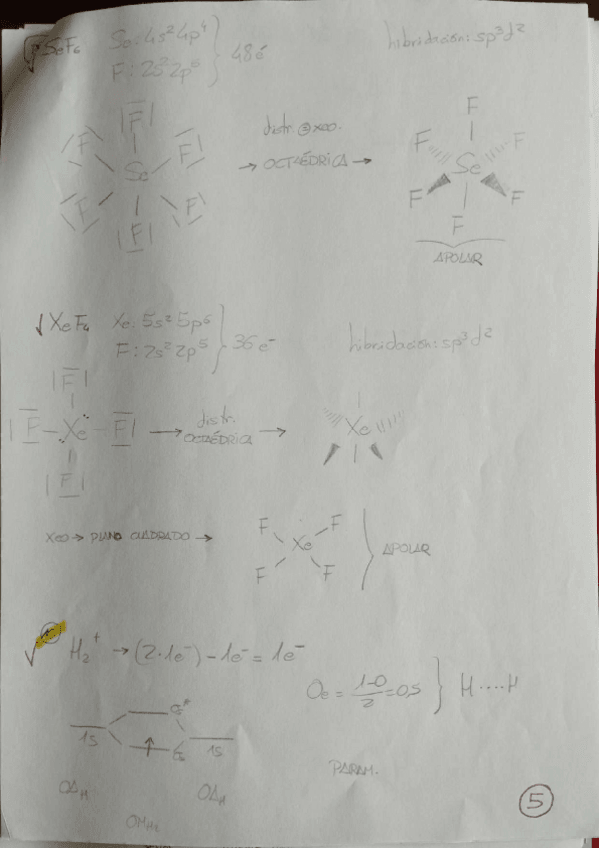 SeF6 Se: 4s² 4p⁴ } 48é hibridación: sp³d²
F: 2s² 2p⁵
F
F F
Se
F F
F
distr. e xeo.
→ OCTAÉDRICA →
F
F F
Se
F F
F
APOLAR
√ XeF4 Xe: 5s² 5p⁶ } 36 e⁻ hibridación: sp³d²
F: 2s² 2p⁵
F
F - Xe - F
F
→ distr. OCTAÉDRICA →
Xe
XEO → PLANO CUADRADO →
F F
Xe
F F
} APOLAR
√ H₂⁺ → (2·1e⁻) - 1e⁻ = 1e⁻
Oe = 1-0/2 = 0,5 } H ···· H
σ*
1S 1S
σs
OAH OAH
OMH2
PARAM.
5